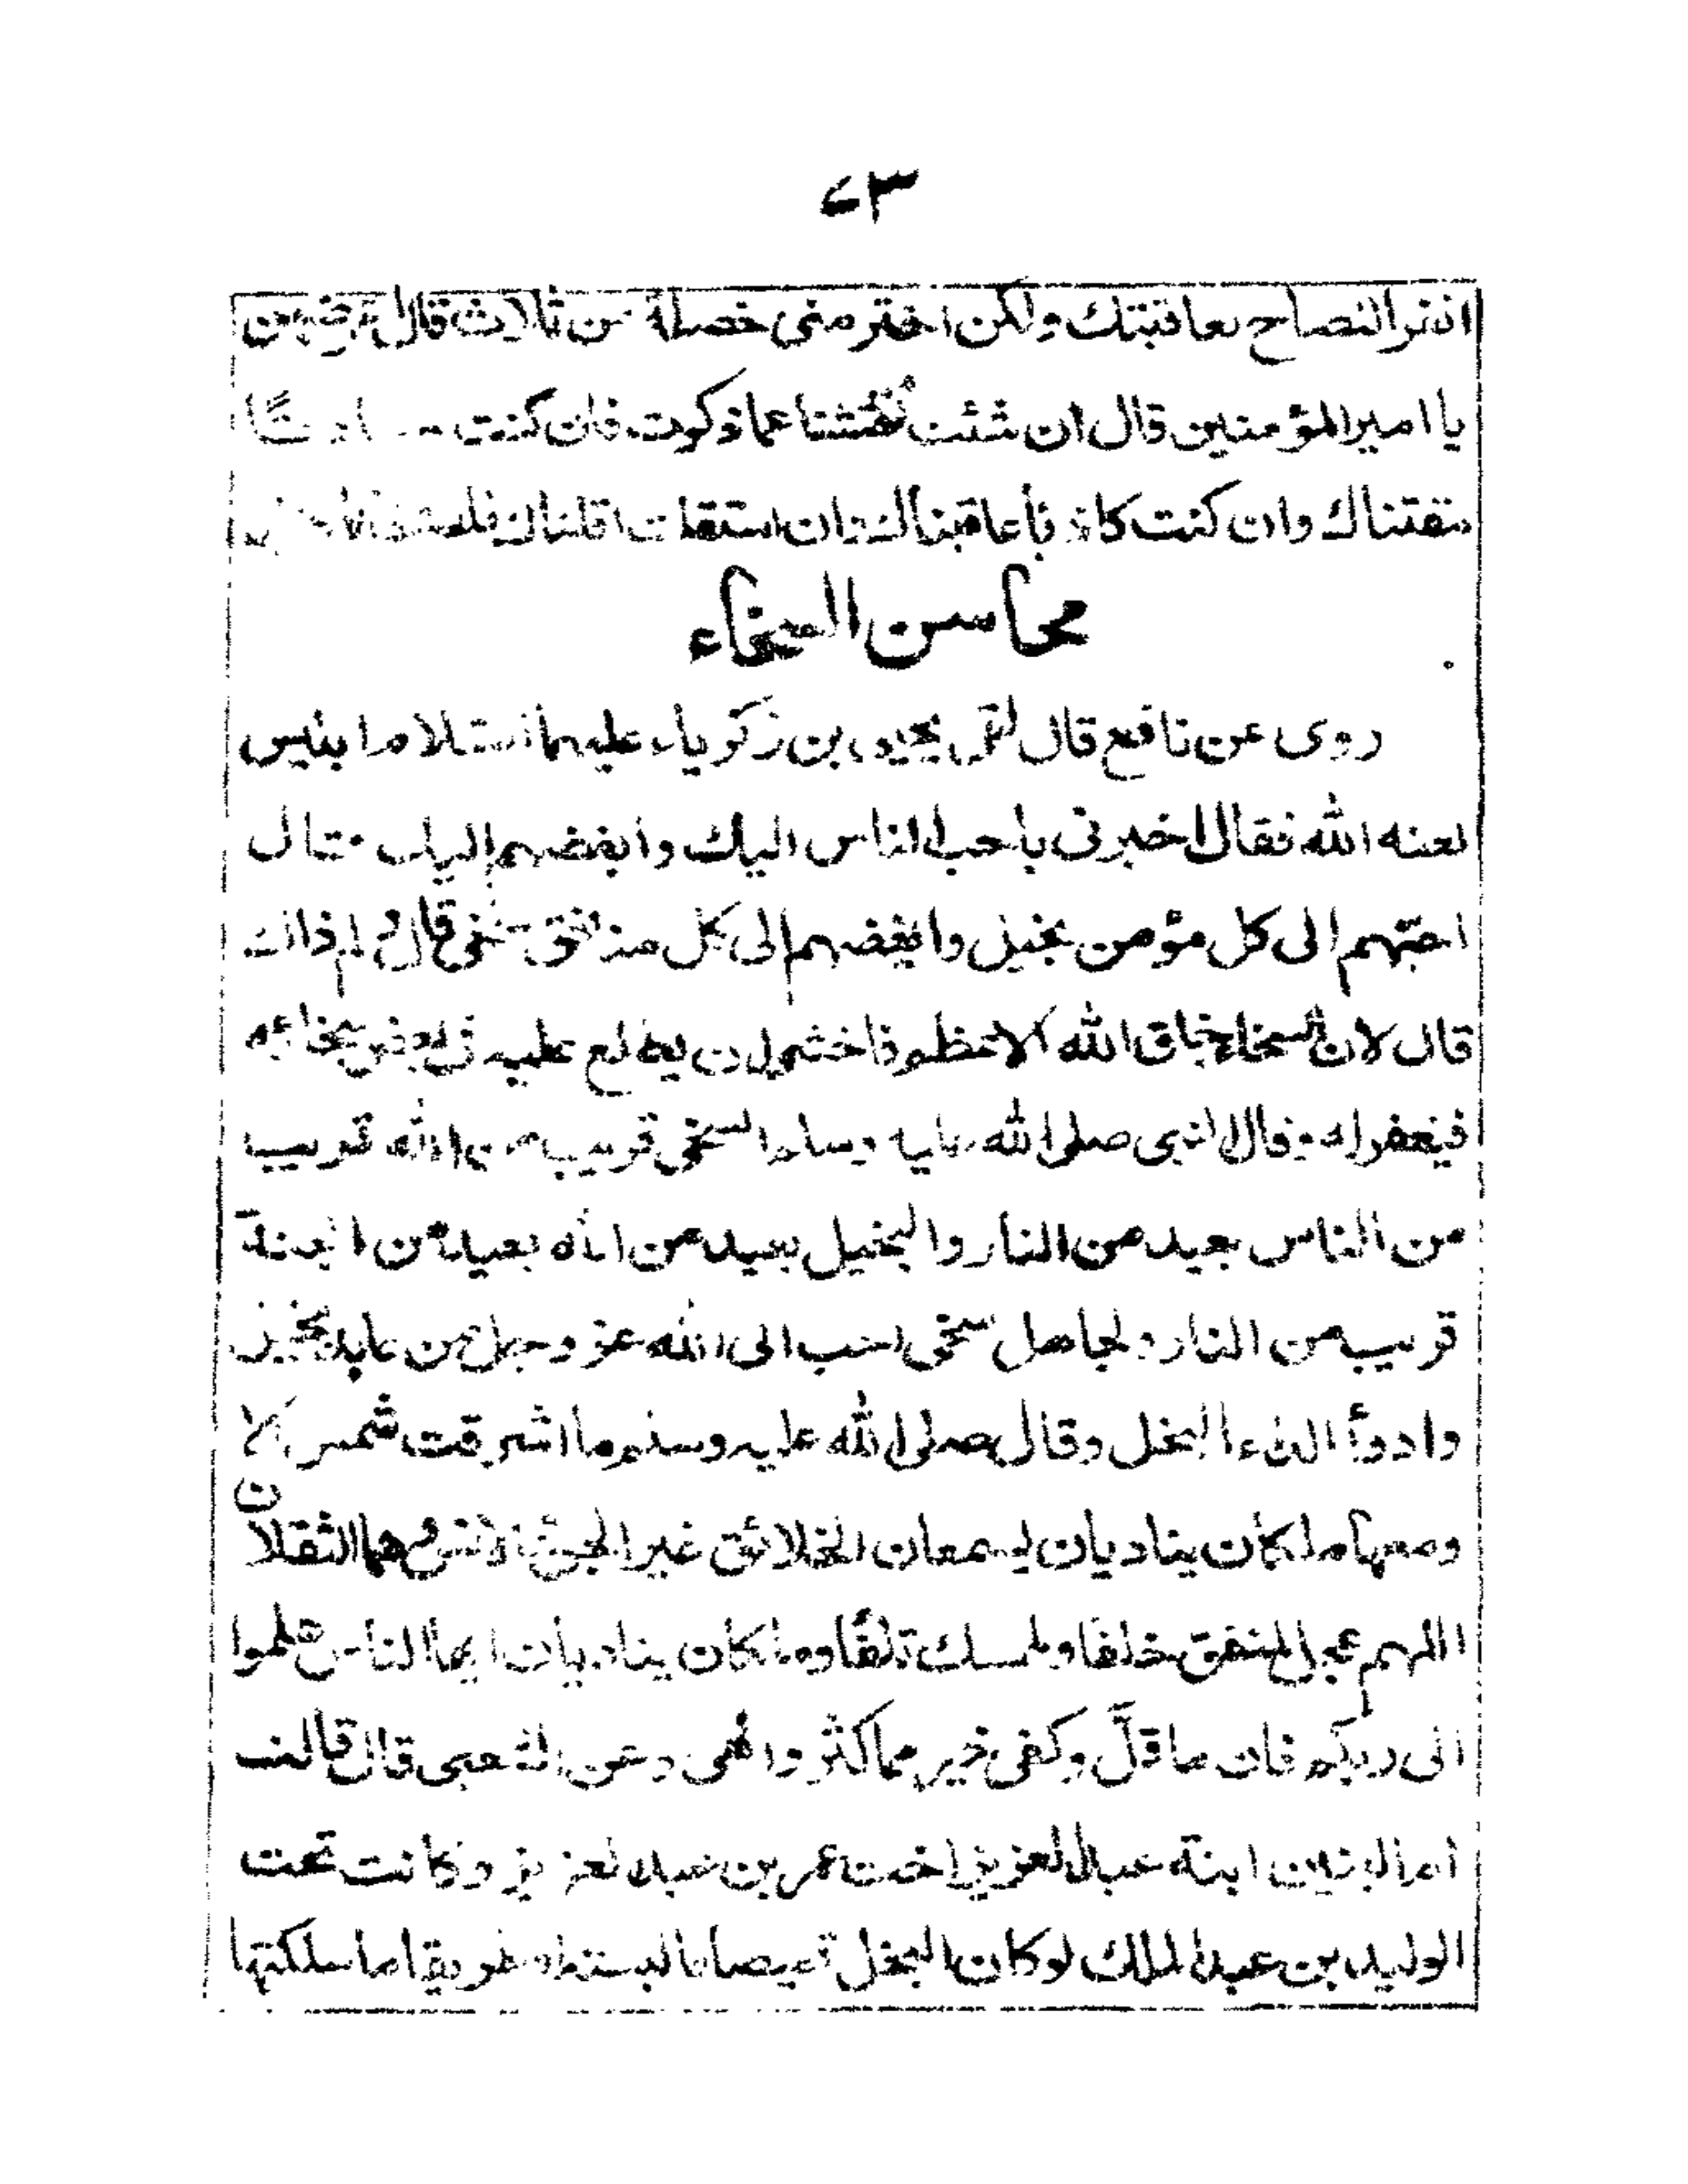 ٤٣
انفر النصاح بعاقبتك ولكن اختر منى خصلة من ثلاث قال
يا امير المؤمنين قال ان شئت فتشنا عما ذكرت فان كنت
مقتناك وان كنت كاذبا عاقبناك وان استقلت اقلناك
محاسن السخاء
روى عن نافع قال لقى يحيى بن زكرياء عليهما السلام ابليس
لعنه الله فقال اخبرنى باحب الناس اليك وأبغضهم اليك فقال
احبهم الى كل مؤمن بخيل وابغضهم الى كل منافق سخى قال ولم ذاك
قال لان السخاء خلق الله الاعظم فاخشى ان يطلع عليه فى بعض سخائه
فيغفر له وقال النبى صلى الله عليه وسلم السخى قريب من الله قريب
من الناس بعيد من النار والبخيل بعيد من الله بعيد من الجنة
قريب من النار ولجاهل سخى احب الى الله عز وجل من عابد بخيل
وادوأ الداء البخل وقال صلى الله عليه وسلم ما اشرقت شمس الا
ومعها ملكان يناديان يسمعان الخلائق غير الجن والانس وهما الثقلان
اللهم عجل لمنفق خلفا ولممسك تلفا وملكان يناديان ايها الناس هلموا
الى ربكم فان ما قلّ وكفى خير مما كثر والهى وعن الشعبى قال قالت
ام البنين ابنة عبد العزيز اخت عمر بن عبد العزيز وكانت تحت
الوليد بن عبد الملك لو كان البخل قميصا ما لبسته او طريقا ما سلكتها